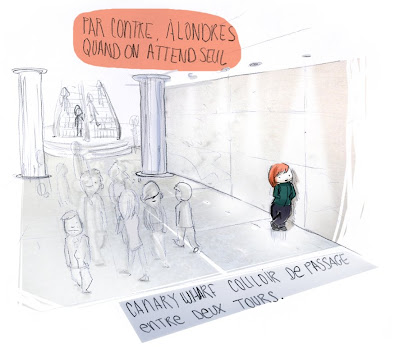 PAR CONTRE, À LONDRES
QUAND ON ATTEND SEUL
CANARY WHARF COULOIR DE PASSAGE
ENTRE DEUX TOURS.